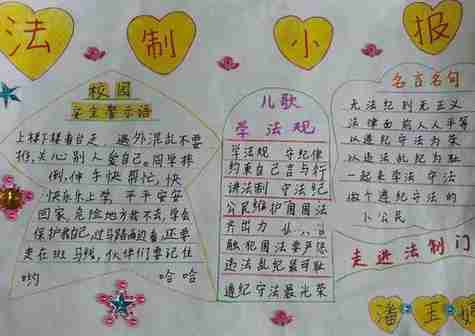 法 制 小 报
校园
安全警示语
上楼下楼看台足，遇外混乱不要
推，关心别人爱自己。同学摔
倒，伸手快帮忙，快
快乐乐上学，平平安安
回家，危险地方我不去，学会
保护我自己，过马路两边看，还要
走在斑马线，伙伴们要记住
哟 哈哈
儿歌
学法观
学法观 守纪律
约束自己言与行
讲法制 守法纪
公民维护国国法
齐出力
触犯国法要严惩
违法乱纪最可耻
遵纪守法最光荣
名言名句
无法纪则无正义
法律面前人人平等
以遵纪守法为荣
以违法乱纪为耻
一起来学法 守法
做个遵纪守法的
小公民
走进法制门
潘 玉